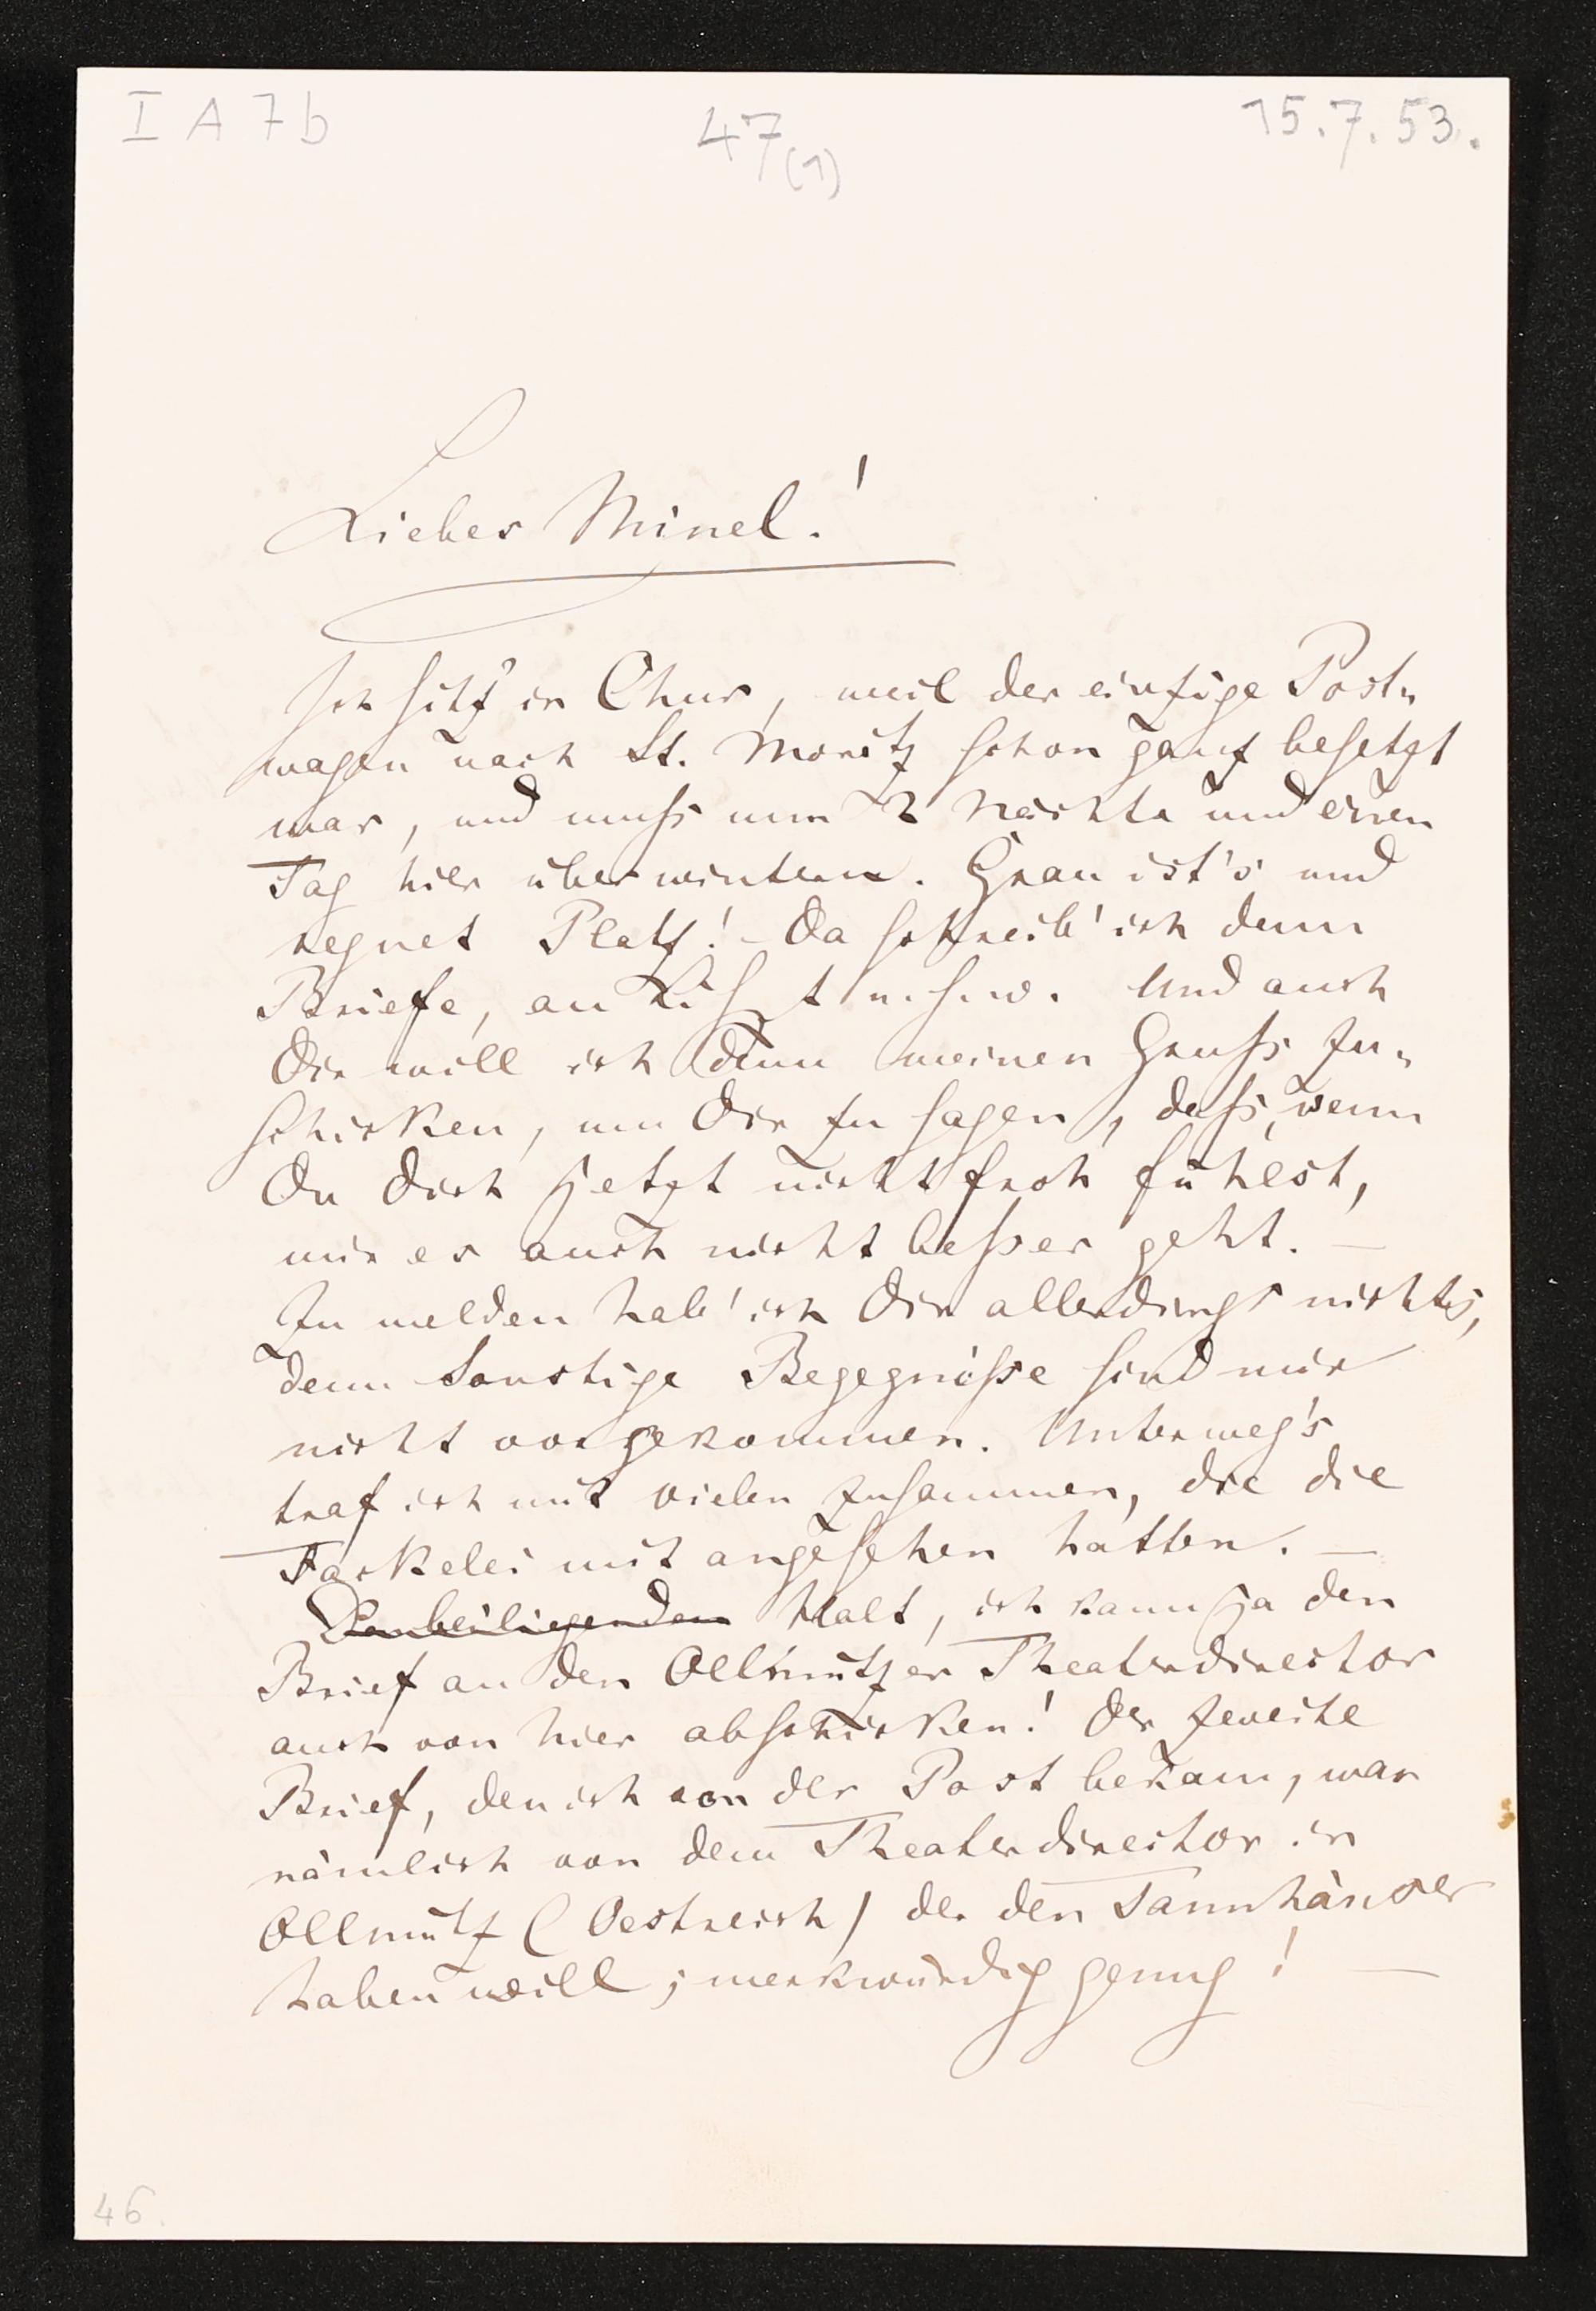 I A 7 b
47 (1)
15.7.53.
Liebes Minel!
Ich sitz' in Chur, weil der einzige Post-
wagen nach St. Moritz schon ganz besetzt
war, und muß nun 2 Nächte und einen
Tag hier überwintern. Grau ist's und
regnet Platz! – Da schreib' ich denn
Briefe, an Liszt u.s.w. Und auch
Dir will ich denn meinen Gruß zu-
schicken, um Dir zu sagen, daß, wenn
Du Dich jetzt nicht froh fühlest,
mir es auch nicht besser geht. —
Zu melden hab' ich Dir allerdings nichts,
denn sonstige Begegniße sind mir
nicht vorgekommen. Unterweg's
traf ich mit vielen zusammen, die die
Fackelei mit angesehen hatten. —
Den beiliegenden Halt, ich kann ja den
Brief an den Ollmützer Theaterdirector
auch von hier abschicken! Der zweite
Brief, den ich von der Post bekam, war
nämlich von dem Theaterdirector in
Ollmütz (Oestreich) der den Tannhäuser
haben will; merkwürdig genug! —
46.